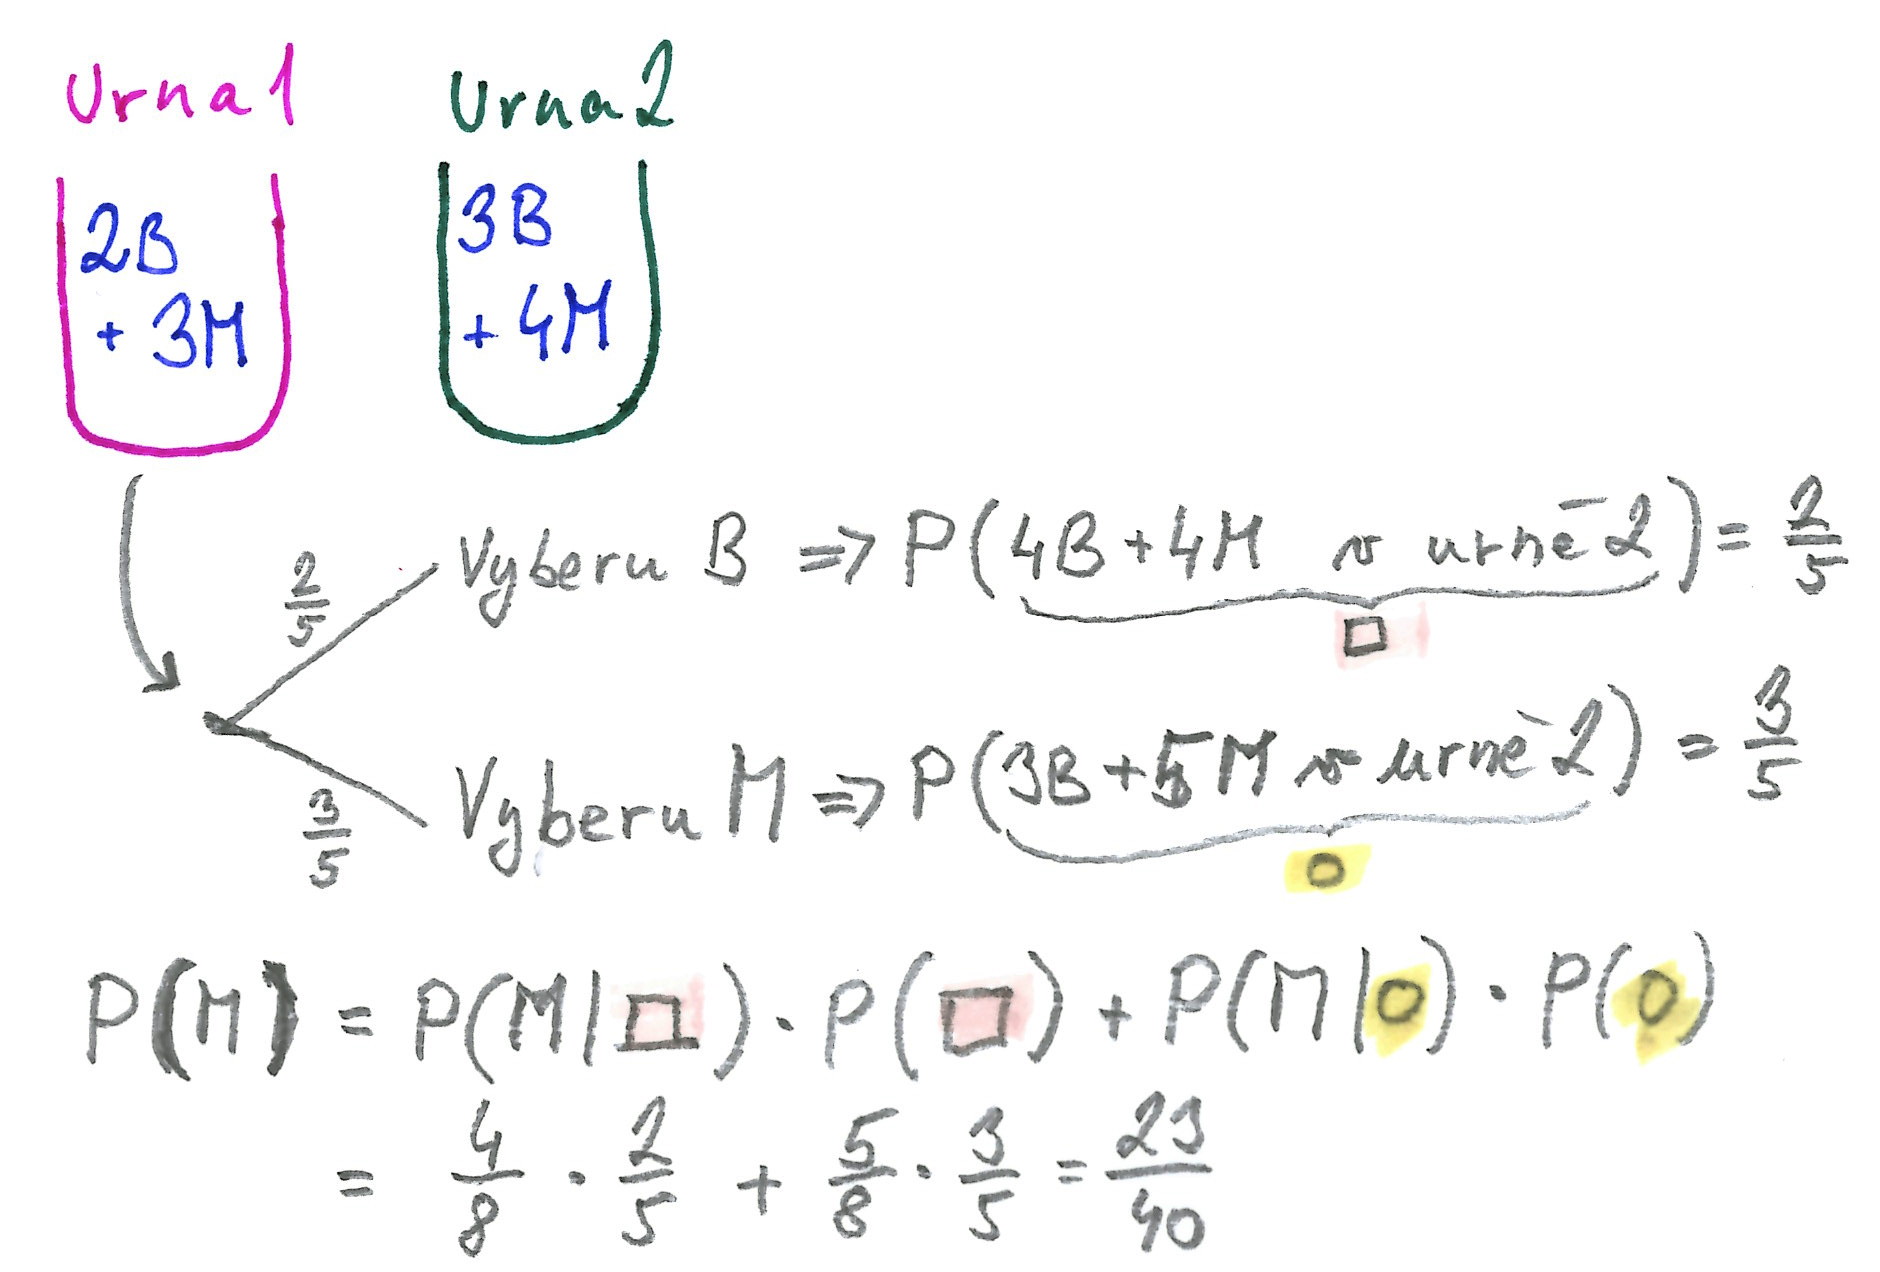 Urna 1 Urna 2
2B
+ 3M
3B
+ 4M
2/5 Vyberu B => P(4B+4M v urně 2) = 2/5
□
3/5 Vyberu M => P(3B+5M v urně 2) = 3/5
○
P(M) = P(M|□) · P(□) + P(M|○) · P(○)
= 4/8 · 2/5 + 5/8 · 3/5 = 23/40